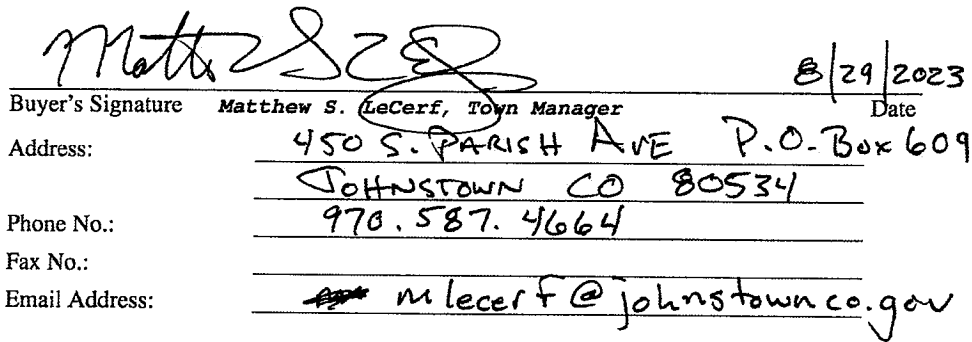 Matt S LeCerf 8/29/2023
Buyer's Signature Matthew S. LeCerf, Town Manager Date
Address: 450 S. PARISH AVE P.O. Box 609
JOHNSTOWN CO 80534
Phone No.: 970.587.4664
Fax No.:
Email Address: mlecerf@johnstownco.gov